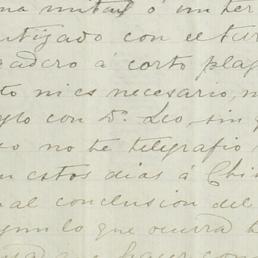 na mitad ó un ter
utizado con el tur
adero á corto plaz
to ni es necesario, n
glo con Dn. Leo. sin q
so no te telegrafio
n estos dias á Chi
al conclusion del
mo lo que ocurra h